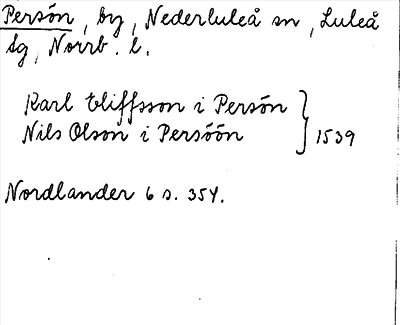 Persön, by, Nederluleå sn, Luleå
tg, Norrb. l.
Karl Eliffsson i Persön
Nils Olson i Persöön } 1539
Nordlander 6 s. 354.